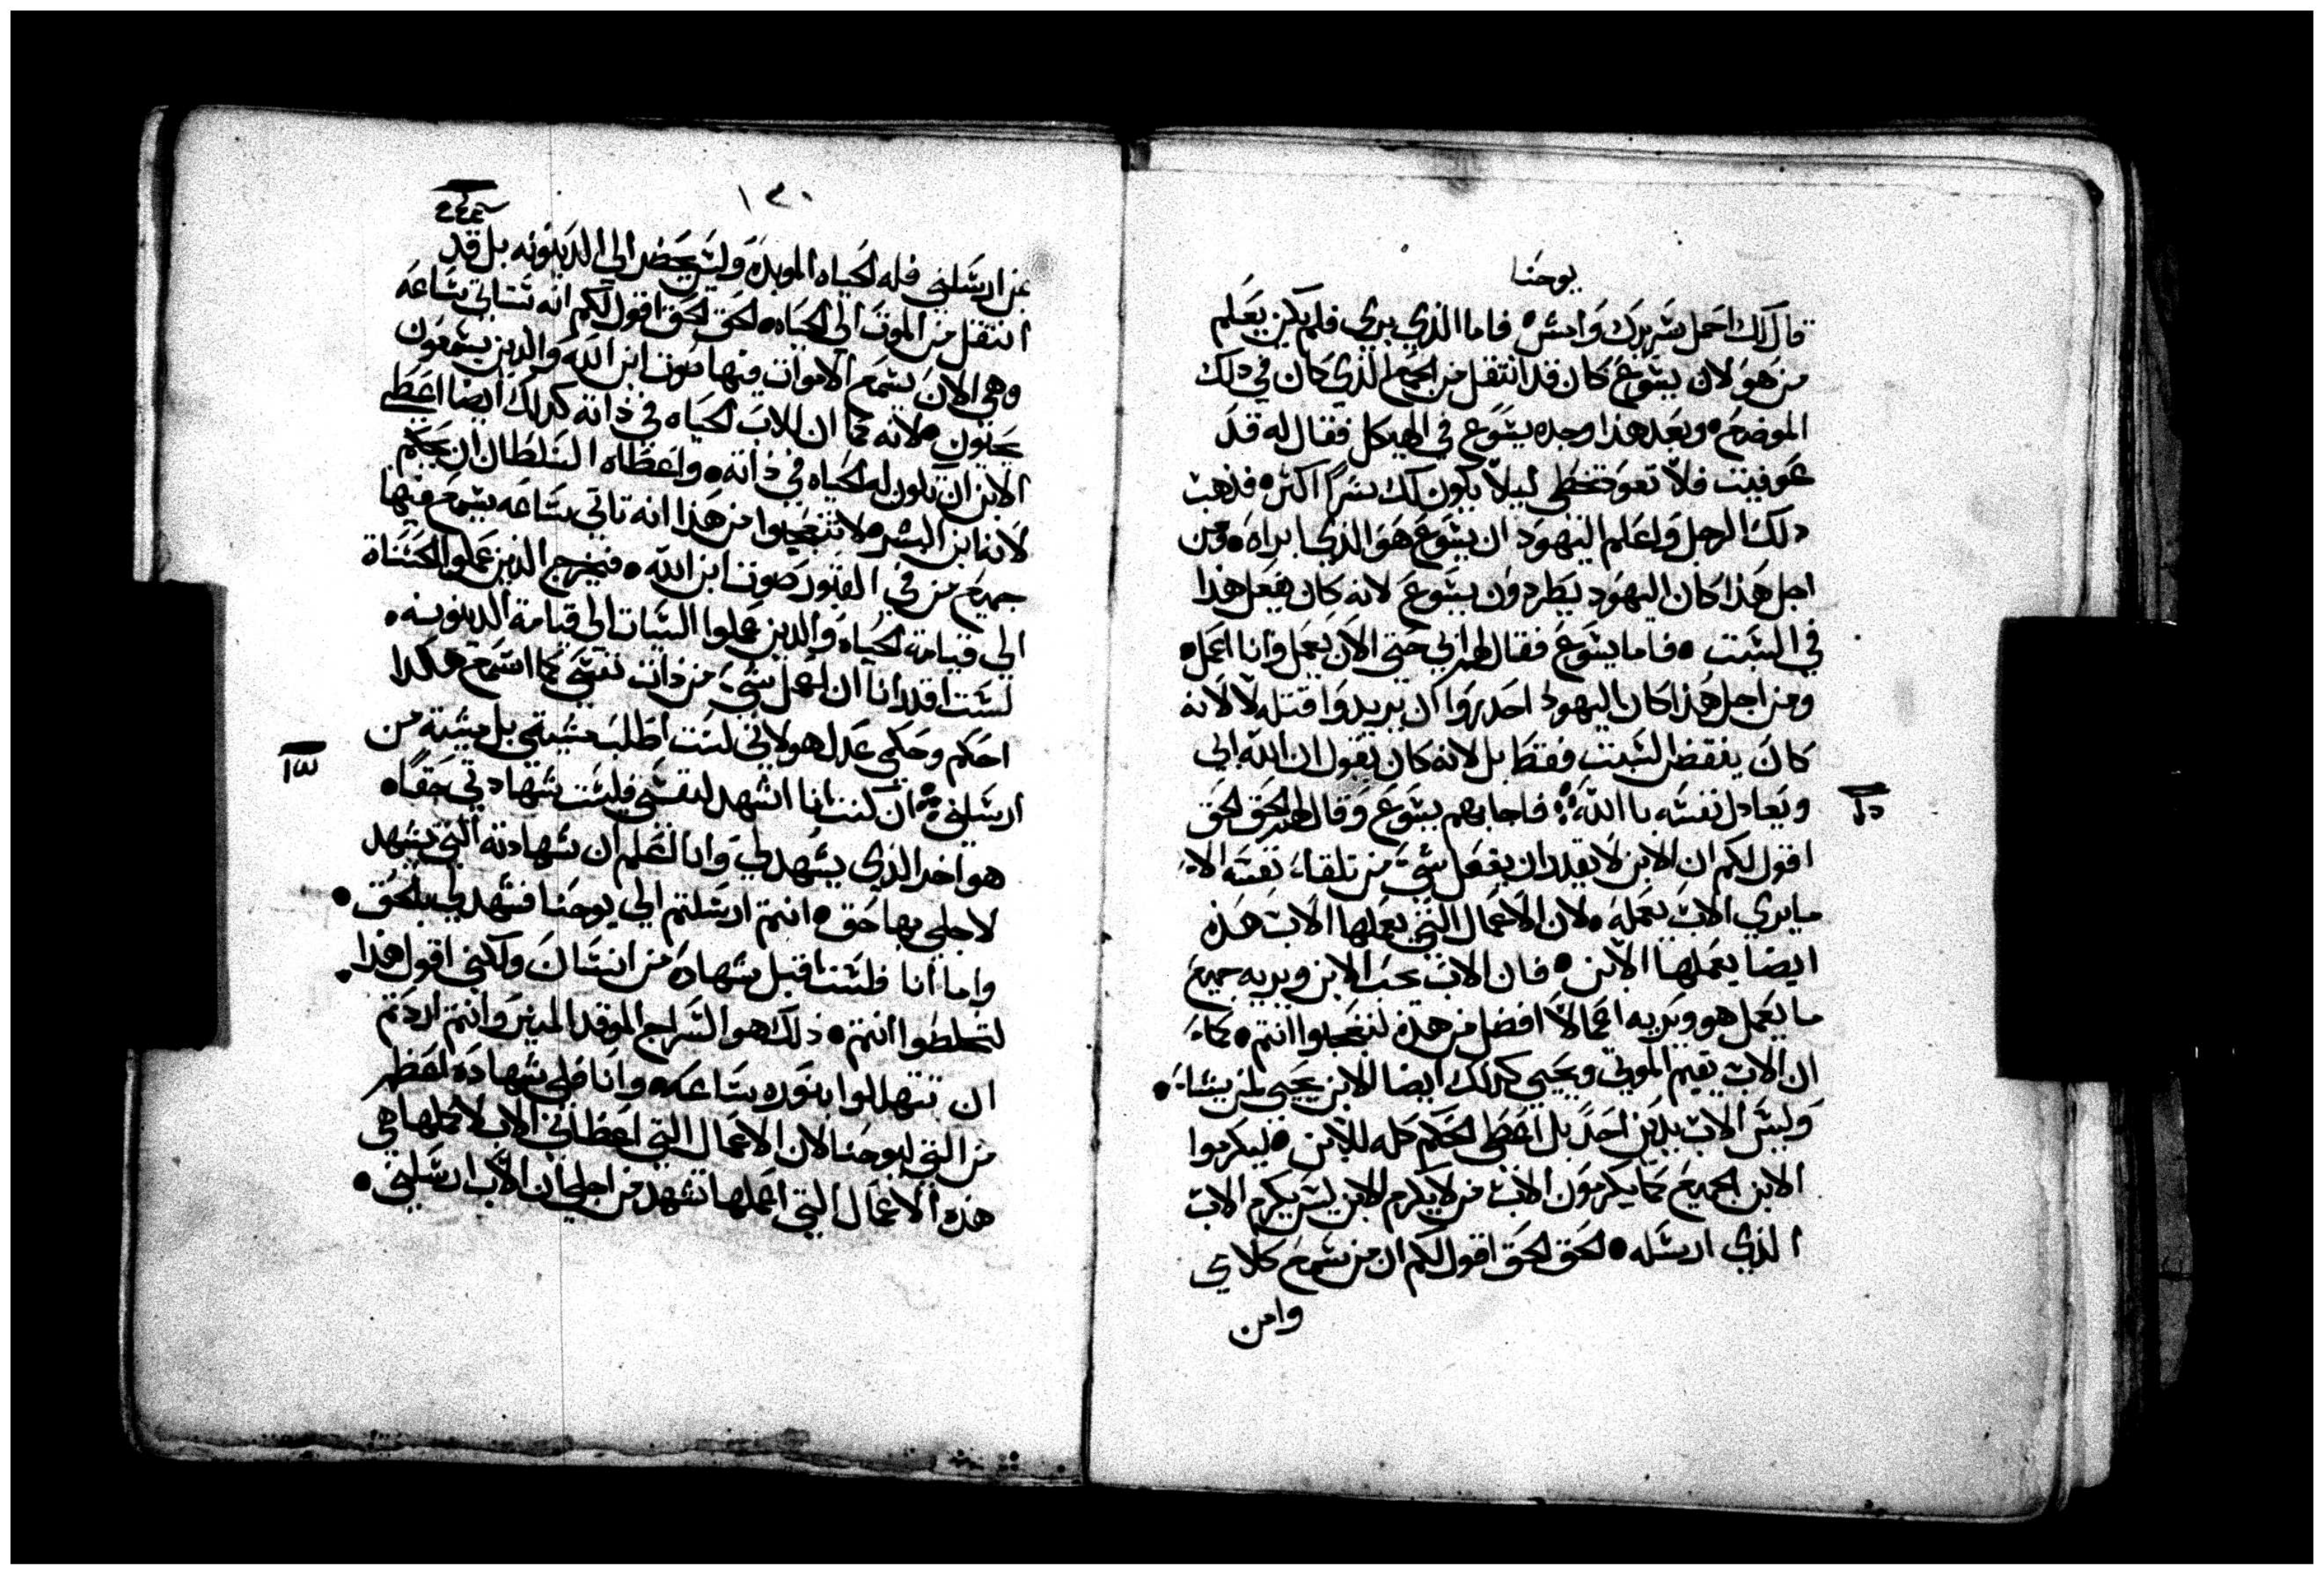 يوحنا
قال لك احمل سريرك وامش فاما الذي بري فلم يكن يعلم
من هو لان يسوع كان قد انتقل من الجمع الذي كان في ذلك
الموضع وبعد هذا وجده يسوع في الهيكل فقال له قد
عوفيت فلا تعود تخطي ليلا يكون لك شرا اكثر فذهب
ذلك الرجل واعلم اليهود ان يسوع هو الذي ابراه ومن
اجل هذا كان اليهود يطردون يسوع لانه كان يفعل هذا
في السبت فاما يسوع فقال لهم ابي حتى الان يعمل وانا اعمل
ومن اجل هذا كان اليهود احدروا ان يريدوا قتله لا لانه
كان ينقض السبت فقط بل لانه كان يقول ان الله ابي
ويعادل نفسه با الله فاجابهم يسوع وقال لهم الحق الحق
اقول لكم ان الابن لا يقدر ان يفعل شي من تلقاء نفسه الا
ما يري الاب يعمله لان الاعمال التي يعملها الاب هذه
ايضا يعملها الابن فان الاب يحب الابن ويريه جميع
ما يعمل هو ويريه اعمالا افضل من هذه لتتعجبوا انتم كما
ان الاب يقيم الموتي ويحيي كذلك ايضا الابن يحيي لمن يشاء
وليس الاب يدين احد بل اعطي الحكم كله للابن ليكرموا
الابن الجميع كما يكرمون الاب من لا يكرم الابن ليس يكرم الاب
الذي ارسله الحق الحق اقول لكم ان من سمع كلامي
وامن
١٢٠
بمن ارسلني فله الحياه الموبده وليس يحضر الي الدينونه بل قد
انتقل من الموت الي الحياه الحق الحق اقول لكم انه ستاتي ساعه
وهي الان يسمع الاموات فيها صوت ابن الله والذين يسمعون
يحيون لانه كما ان للاب الحياه في ذاته كذلك ايضا اعطي
الابن ان تكون له الحياه في ذاته واعطاه السلطان ان يحكم
لانه ابن البشر لا تتعجبوا من هذا انه تاتي ساعه يسمع فيها
جميع من في القبور صوت ابن الله فيخرج الذين عملوا الحسناة
الي قيامة الحياه والذين عملوا السيات الي قيامة الدينونه
لست اقدر انا ان اعمل شي من ذات نفسي كما اسمع هكدا
احكم وحكمي عدل هو لاني لست اطلب مشيتي بل مشية من
ارسلني ان كنت انا اشهد لنفسي فليست شهادتي حقا
هو اخر الذي يشهد لي وانا اعلم ان شهادته التي يشهد
لاجلي بها حق انتم ارسلتم الي يوحنا فشهد لي بالحق
واما انا فلست اقبل شهاده من انسان ولكني اقول هذا
لتخلصوا انتم ذلك هو السراج الموقد المنير وانتم اردتم
ان تتهللوا بنوره ساعه وانا فلي شهاده اعظم
من التي ليوحنا لان الاعمال التي اعطاني الاب لاكملها هي
هذه الاعمال التي اعملها تشهد من اجلي ان الاب ارسلني